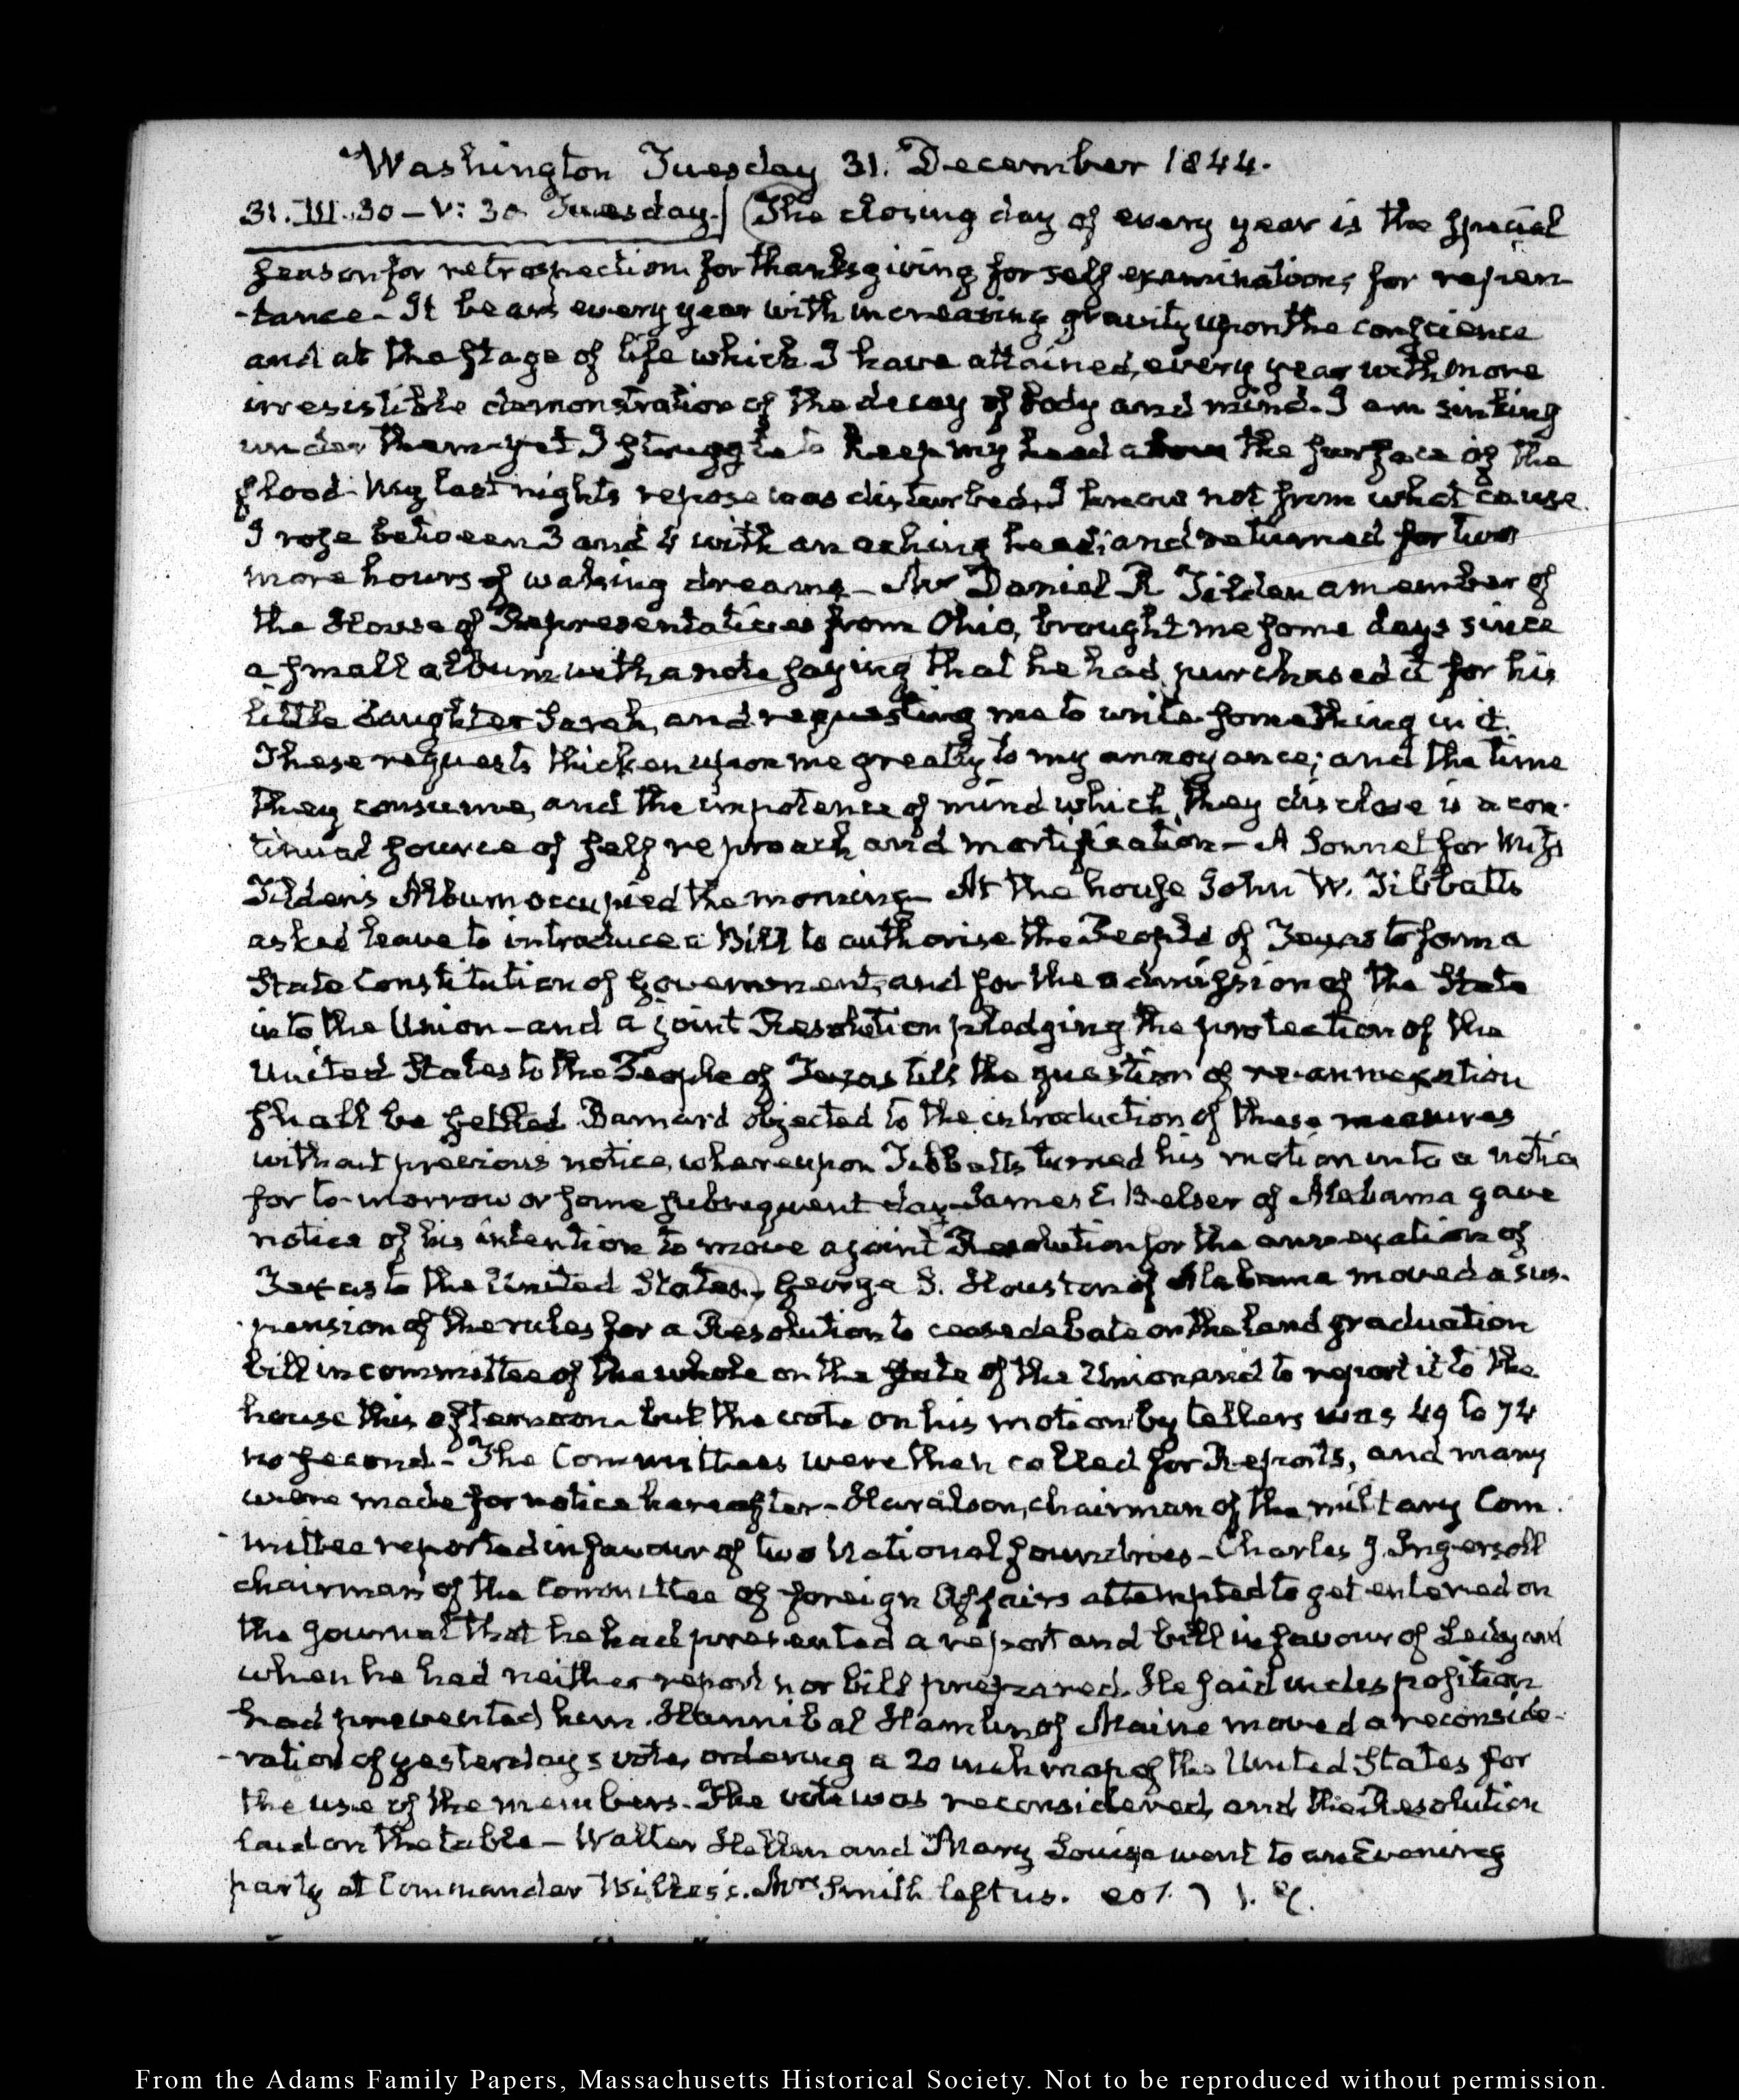 Washington Tuesday 31. December 1844.
31. III. 30 – V: 30. Tuesday.] (The closing day of every year is the special
season for retrospection for thanksgiving for self examination, for repen-
-tance – It bears every year with increasing gravity upon the conscience
and at the stage of life which I have attained, every year with more
irresistible demonstration of the decay of body and mind. I am sinking
under them yet I struggle to keep my head above the surface of the
flood. My last night's repose was disturbed, I know not from what cause.
I rose between 3 and 4 with an aching head; and returned for two
more hours of waking dreams – Mr Daniel R Tilden a member of
the House of Representatives from Ohio, brought me some days since
a small album with a note saying that he had purchased it for his
little daughter Sarah, and requesting me to write something in it.
These requests thicken upon me greatly to my annoyance; and the time
they consume, and the impotence of mind which they disclose is a con-
tinual source of self reproach and mortification – A Sonnet for Miss
Tilden's Album occupied the morning – At the house John W. Tibbatts
asked leave to introduce a Bill to authorise the People of Texas to form a
State Constitution of Government, and for the admission of the State
into the Union – and a joint Resolution pledging the protection of the
United States to the People of Texas till the question of re-annexation
shall be settled. Barnard objected to the introduction of these measures
without previous notice, whereupon Tibbatts turned his motion into a notice
for to-morrow or some subsequent day. James E. Belser of Alabama gave
notice of his intention to move a joint Resolution for the annexation of
Texas to the United States.) George S. Houston of Alabama moved a sus-
-pension of the rules for a Resolution to cease debate on the land graduation
bill in committee of the whole on the state of the Union and to report it to the
house this afternoon. but the vote on his motion by tellers was 49 to 74
no second. – The Committees were then called for Reports, and many
were made for notice hereafter – Haralson, chairman of the military Com-
-mittee reported in favour of two National foundries – Charles J. Ingersoll
chairman of the Committee of foreign Affairs attempted to get entered on
the Journal that he had presented a report and bill in favour of
when he had neither report nor bill prepared. He said indisposition
had prevented him. Hannibal Hamlin of Maine moved a reconside-
-ration of yesterday's vote, ordering a 20 inch map of the United States for
the use of the members. The vote was reconsidered, and the Resolution
laid on the table – Walter Hellen and Mary Louisa went to an Evening
party at Commander Wilkes's. Mrs Smith left us.
From the Adams Family Papers, Massachusetts Historical Society. Not to be reproduced without permission.